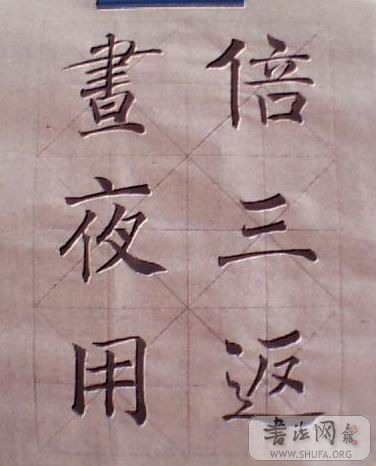 倍三返
晝夜用
書法网
WWW.SHUFA.ORG